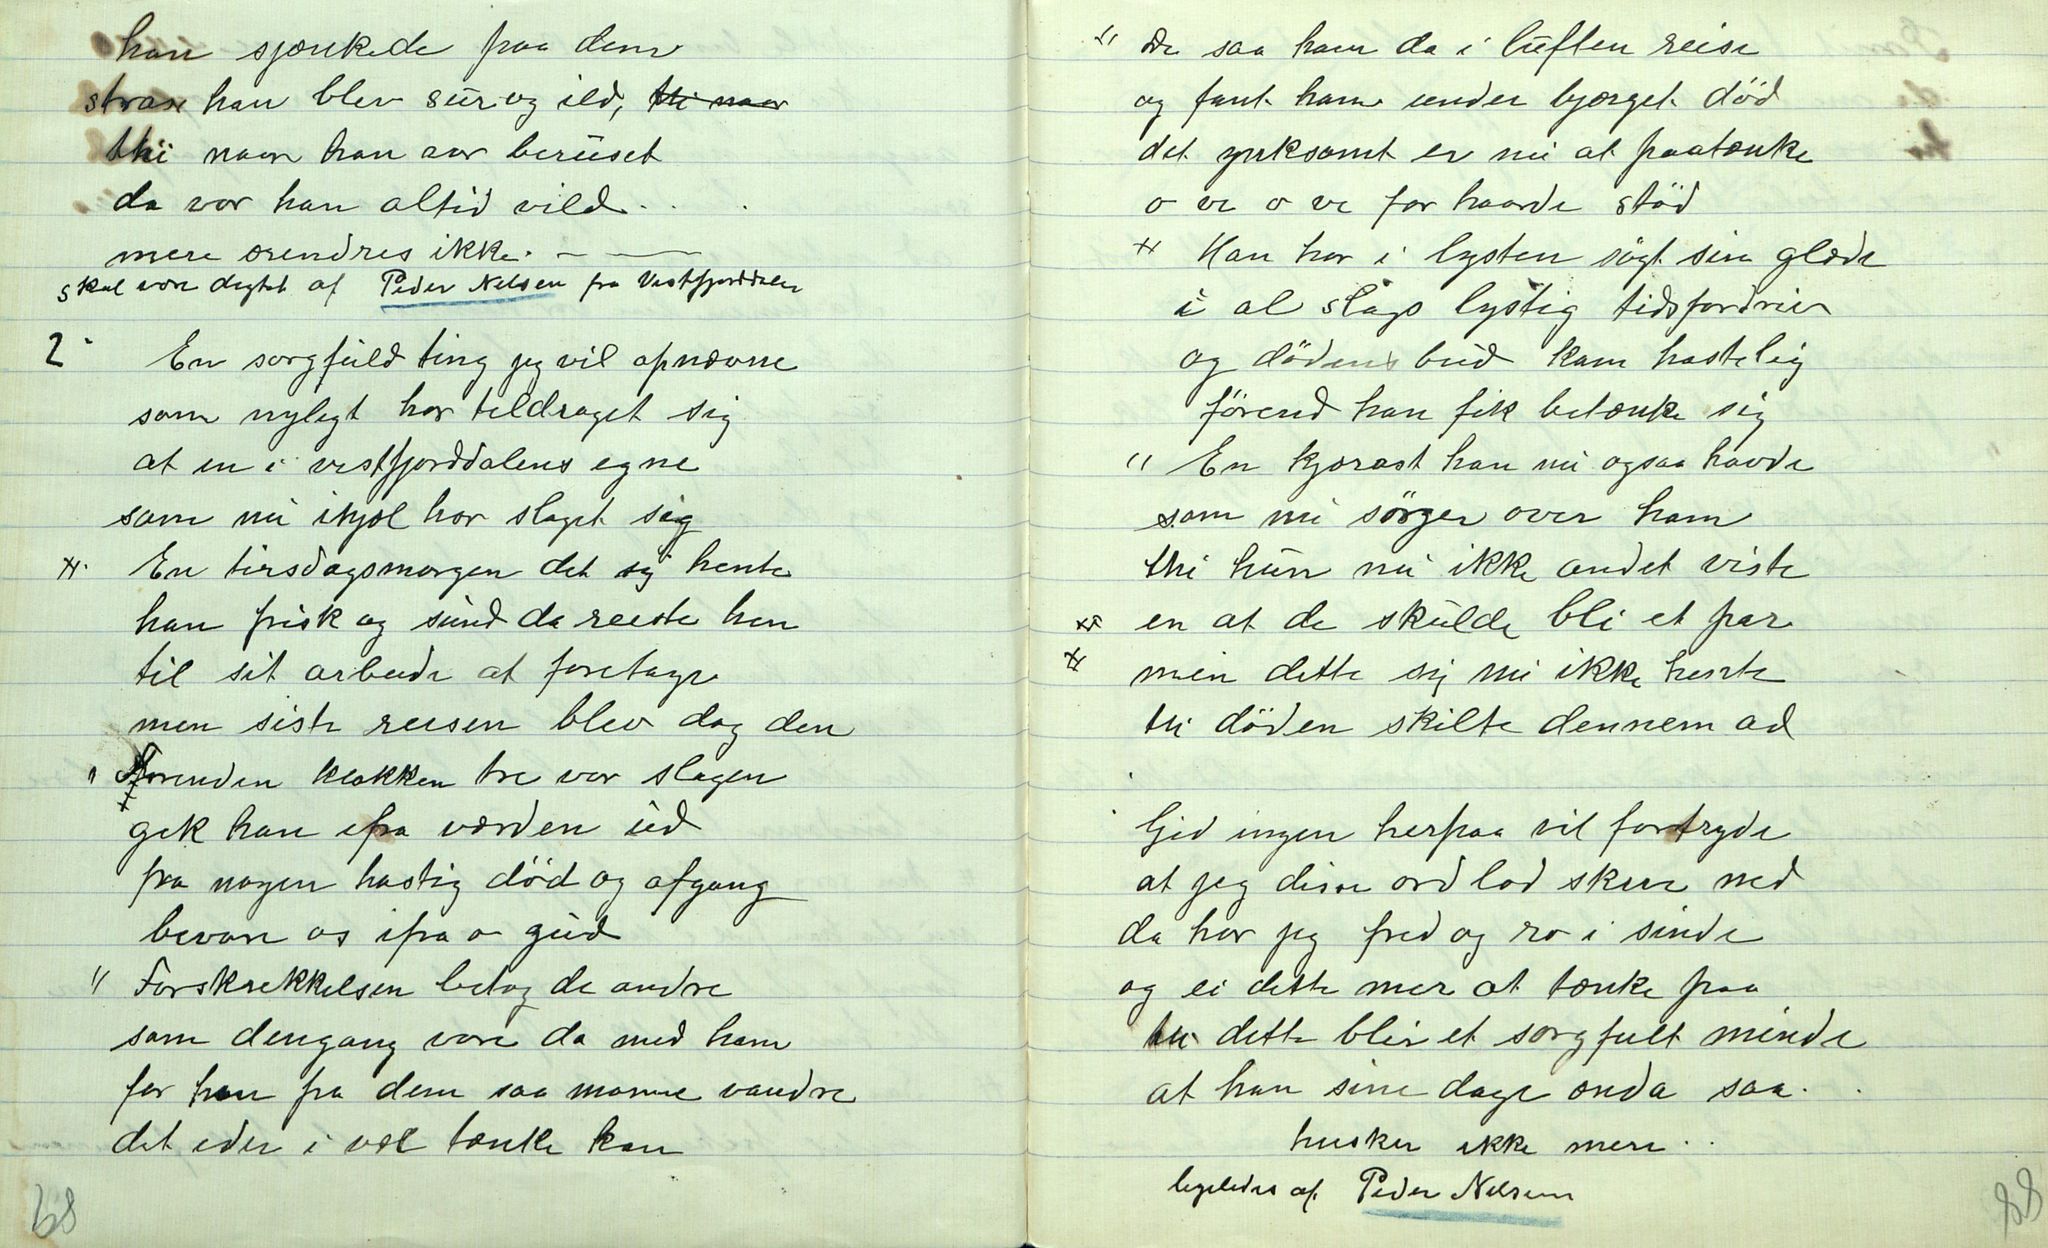 han sjænkede paa dem
strax han blev sur og ild, thi naar
thi naar han var beruset
da var han altid vild . .
mere ærendres ikke. — —
skal være digtet af Peder Nelsen fra Vestfjorddalen
2. En sorgfuld ting jeg vil opnævne
som nyligt har tildraget sig
at en i vestfjorddalens egne
som nu ihjæl har slaget sig
" En tirsdagsmorgen det sig hente
han frisk og sund da reiste hen
til sit arbeide at foretage
men siste reisen blev dog den
" Förenden klokken tre var slagen
gik han ifra værden ud
fra nogen hastig död og afgang
bevare os ifra o gud
" Forskrekkelsen betog de andre
som dengang vare da med ham
for han fra dem saa monne vandre
det eder i vel tænke kan
68
" De saa ham da i luften reise
og fant ham under bjærget död
det ynksomt er nu at paatænke
o ve o ve for haarde stöd
" Han har i lysten sögt sin glæde
i al slags lystig tidsfordriv
og dödens bud kam hastelig
förend han fik betænke sig
" En kjærast han nu ogsaa havde
som nu sörger over ham
thi hun nu ikke andet viste
" en at de skulde bli et par
" men dette sig nu ikke hente
thi döden skilte dennem ad
Gid ingen herpaa vil fortryde
at jeg disse ord lod skrive ned
da har jeg fred og ro i sinde
og ei dette mer at tænke paa
thi dette blir et sorgfult minde
at han sine dage enda saa. .
husker ikke mere . .
ligeledes af Peder Nelsen